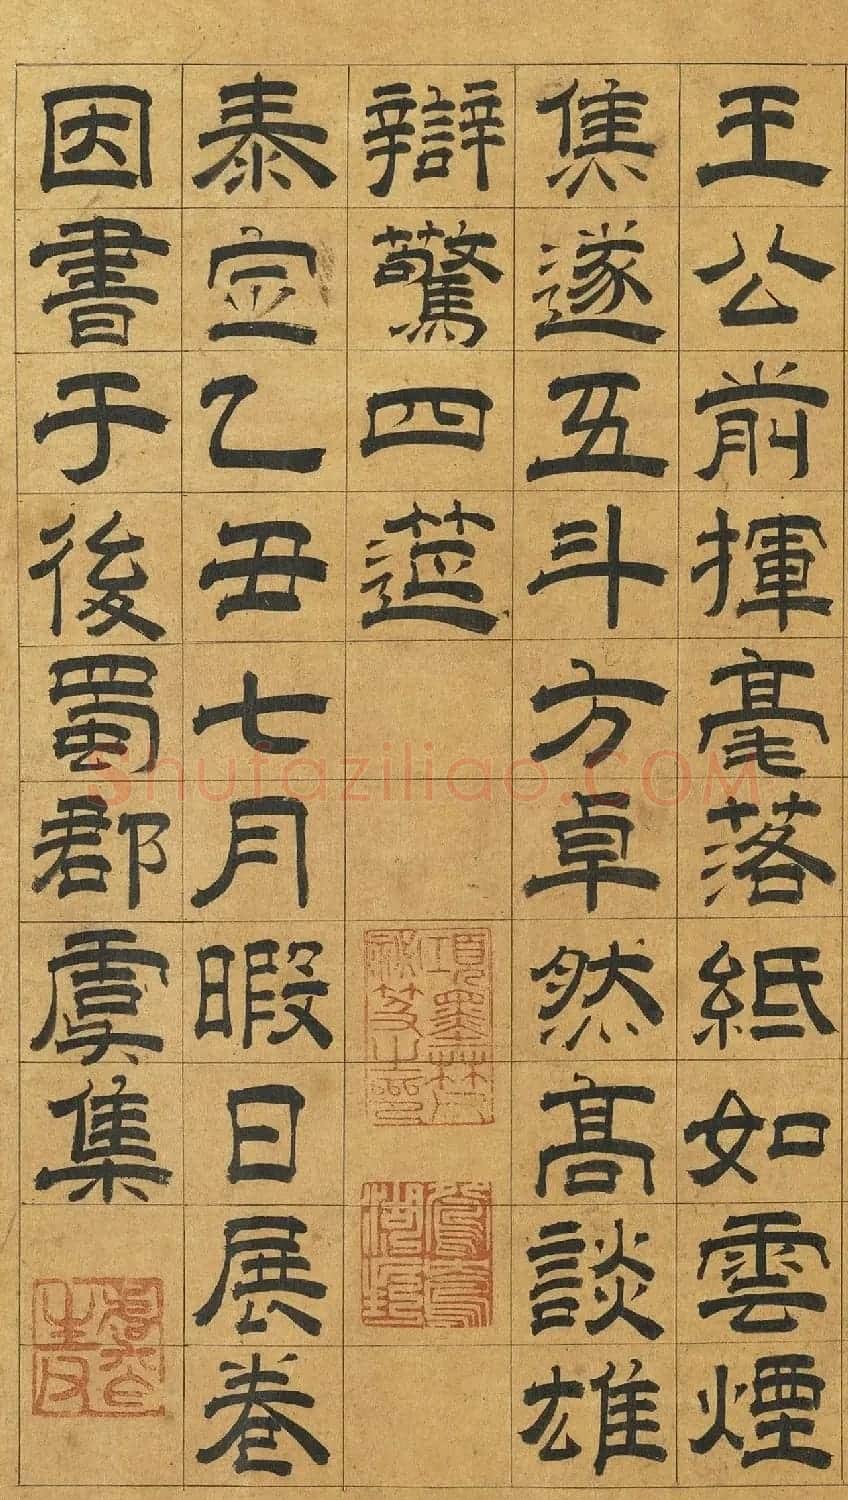 王公前揮毫落紙如雲煙
焦遂五斗方卓然高談雄
辯驚四筵
泰定乙丑七月暇日展卷
因書于後蜀郡虞集
項墨林父祕笈之印
shufaziliao.COM